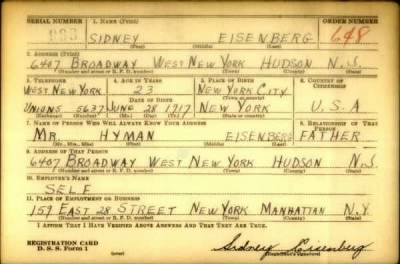 SERIAL NUMBER 1. NAME (Print) ORDER NUMBER
SIDNEY EISENBERG 648
(First) (Middle) (Last)
2. ADDRESS (Print)
6407 BROADWAY WEST NEW YORK HUDSON N.J.
(Number and street or R. F. D. number) (Town) (County) (State)
3. TELEPHONE 4. AGE IN YEARS 5. PLACE OF BIRTH 6. COUNTRY OF CITIZENSHIP
WEST NEW YORK 23 NEW YORK CITY
DATE OF BIRTH (Town or county)
UNION 5 5637 JUNE 28 1917 NEW YORK U.S.A
(Exchange) (Number) (Mo.) (Day) (Yr.) (State or country)
7. NAME OF PERSON WHO WILL ALWAYS KNOW YOUR ADDRESS 8. RELATIONSHIP OF THAT PERSON
MR. HYMAN EISENBERG FATHER
(Mr., Mrs., Miss) (First) (Middle) (Last)
9. ADDRESS OF THAT PERSON
6407 BROADWAY WEST NEW YORK HUDSON N.J.
(Number and street or R. F. D. number) (Town) (County) (State)
10. EMPLOYER'S NAME
SELF
11. PLACE OF EMPLOYMENT OR BUSINESS
159 EAST 28 STREET NEW YORK MANHATTAN N.Y.
(Number and street or R. F. D. number) (Town) (County) (State)
I AFFIRM THAT I HAVE VERIFIED ABOVE ANSWERS AND THAT THEY ARE TRUE.
REGISTRATION CARD
D. S. S. Form 1 (over) Sidney Eisenberg
(Registrant's signature)